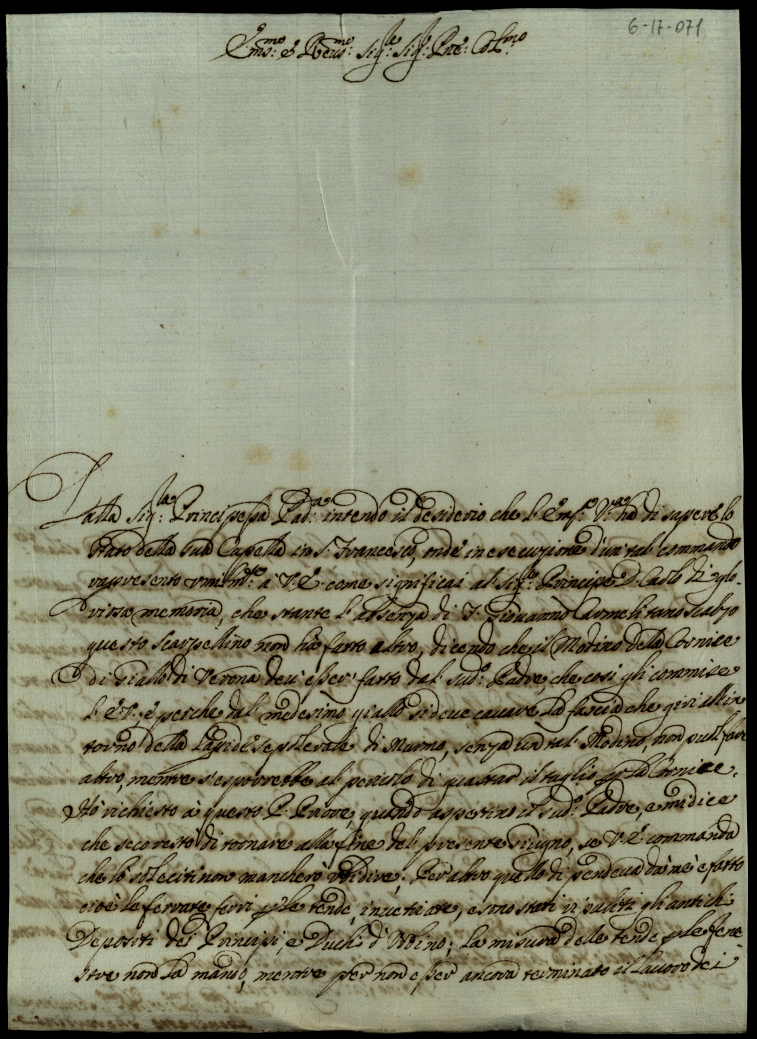 6-17-071
Em.mo: e Reu.mo: Sig.re: Sig.r: Pne: Col.mo
Dalla Sig.la: Principessa Pad.a: intendo il desiderio che l'Em.za: V.ra ha di sapere lo
stato della sua Capella in S. Francesco, onde in esecuzione d'un tal commando
rappresento umilm.te: a V. E. come significai al Sig.r: Principe D. Carlo di glo-
riosa memoria, che stante l'absenza di F. Giovanno Carmelitano Scalzo
questo Scarpellino non hà fatto altro, dicendo che il Modino della Cornice
di Giallo di Verona deu'esser fatto dal sud.o: Padre, che così gli commise
l'E. V. e perche dal medesimo giallo si deue cauare la fascia che giri all'in
torno della Lapide sepolcrale di Marmo, senza un tal Modino, non può fare
altro, mentre s'esporrebbe al pericolo di guastar il taglio p. la Cornice.
Hò richiesto à questo P. Priore, quando aspettino il sud.o: Padre, e mi dice
che secoresto di tornare alla fine del presente giugno, se V. E. commanda
che lo soleciti non mancherò ubidire. Per altro quello di pendeua da me è fatto
cioè le ferrate, ferri p. le tende, inuetriate, e sono stati ri puliti gli antichi
Depositi dei Principi, e Duchi d'Urbino; la misura delle tende p. le fene
stre non la mando, mentre per non esser ancora terminato il lauoro dei